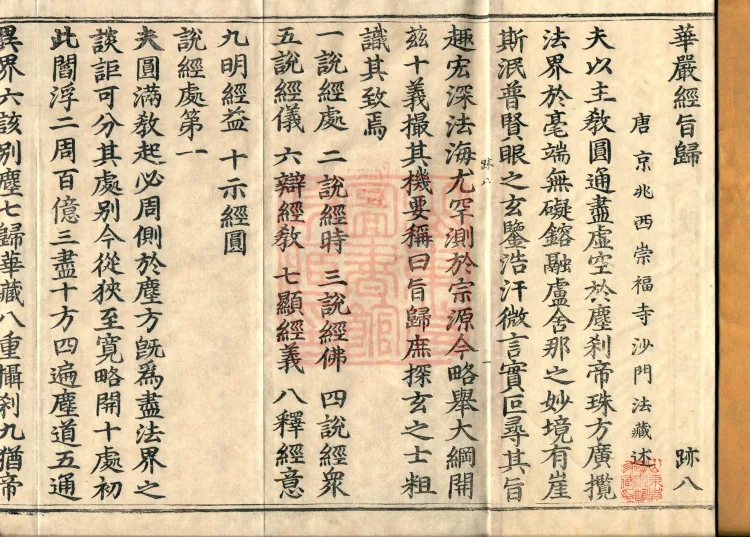 華嚴經旨歸 跡八
唐京兆西崇福寺沙門法藏述
夫以主教圓通盡虛空於塵刹帝珠方廣攬
法界於毫端無礙鎔融盧舍那之妙境有崖
斯泯普賢眼之玄鑒浩汗微言實叵尋其旨
跡八 一
趣宏深法海尤罕測於宗源今略舉大綱開
茲十義撮其機要稱曰旨歸庶探玄之士粗
識其致焉
一說經處 二說經時 三說經佛 四說經衆
五說經儀 六辯經教 七顯經義 八釋經意
九明經益 十示經圓
說經處第一
夫圓滿教起必周側於塵方既爲盡法界之
談詎可分其處别今從狹至寬略開十處初
此閻浮二周百億三盡十方四遍塵道五通
異界六該别塵七歸華藏八重攝刹九猶帝